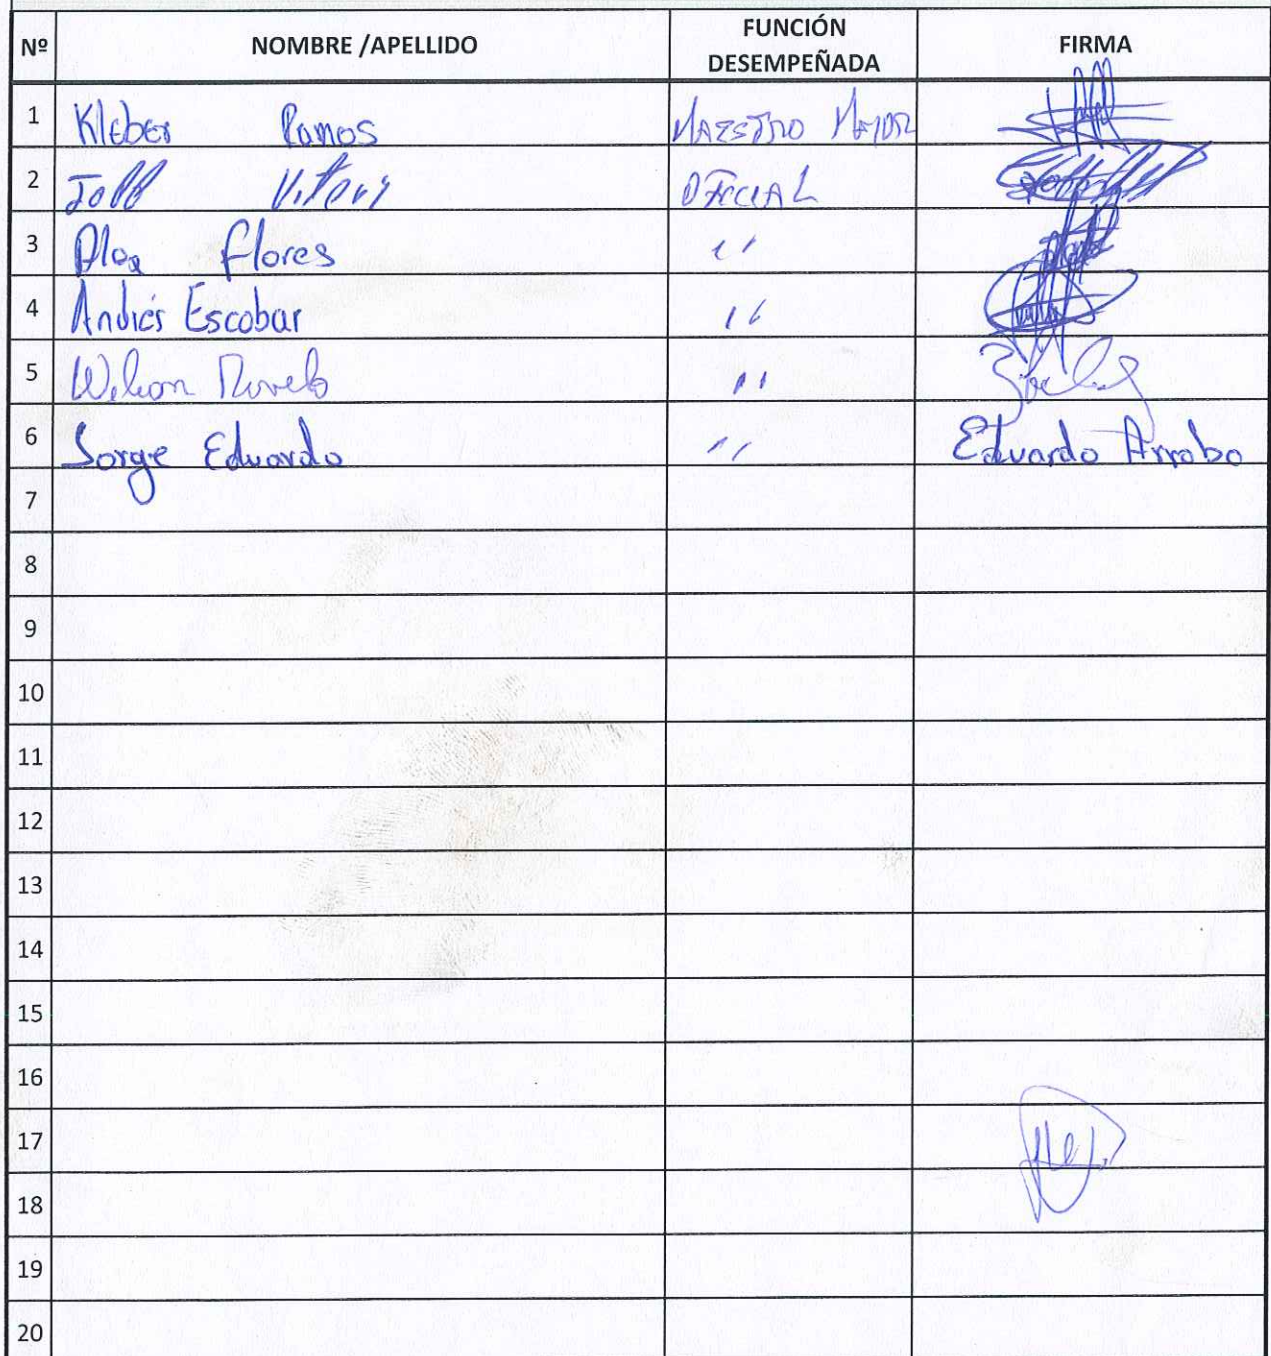 Nº NOMBRE /APELLIDO FUNCIÓN DESEMPEÑADA FIRMA
1 Kleber Ramos MAESTRO MAYOR
2 OFICIAL
3 Flores ''
4 Andrés Escobar ''
5 ''
6 Jorge Eduardo '' Eduardo Arrobo
7
8
9
10
11
12
13
14
15
16
17
18
19
20